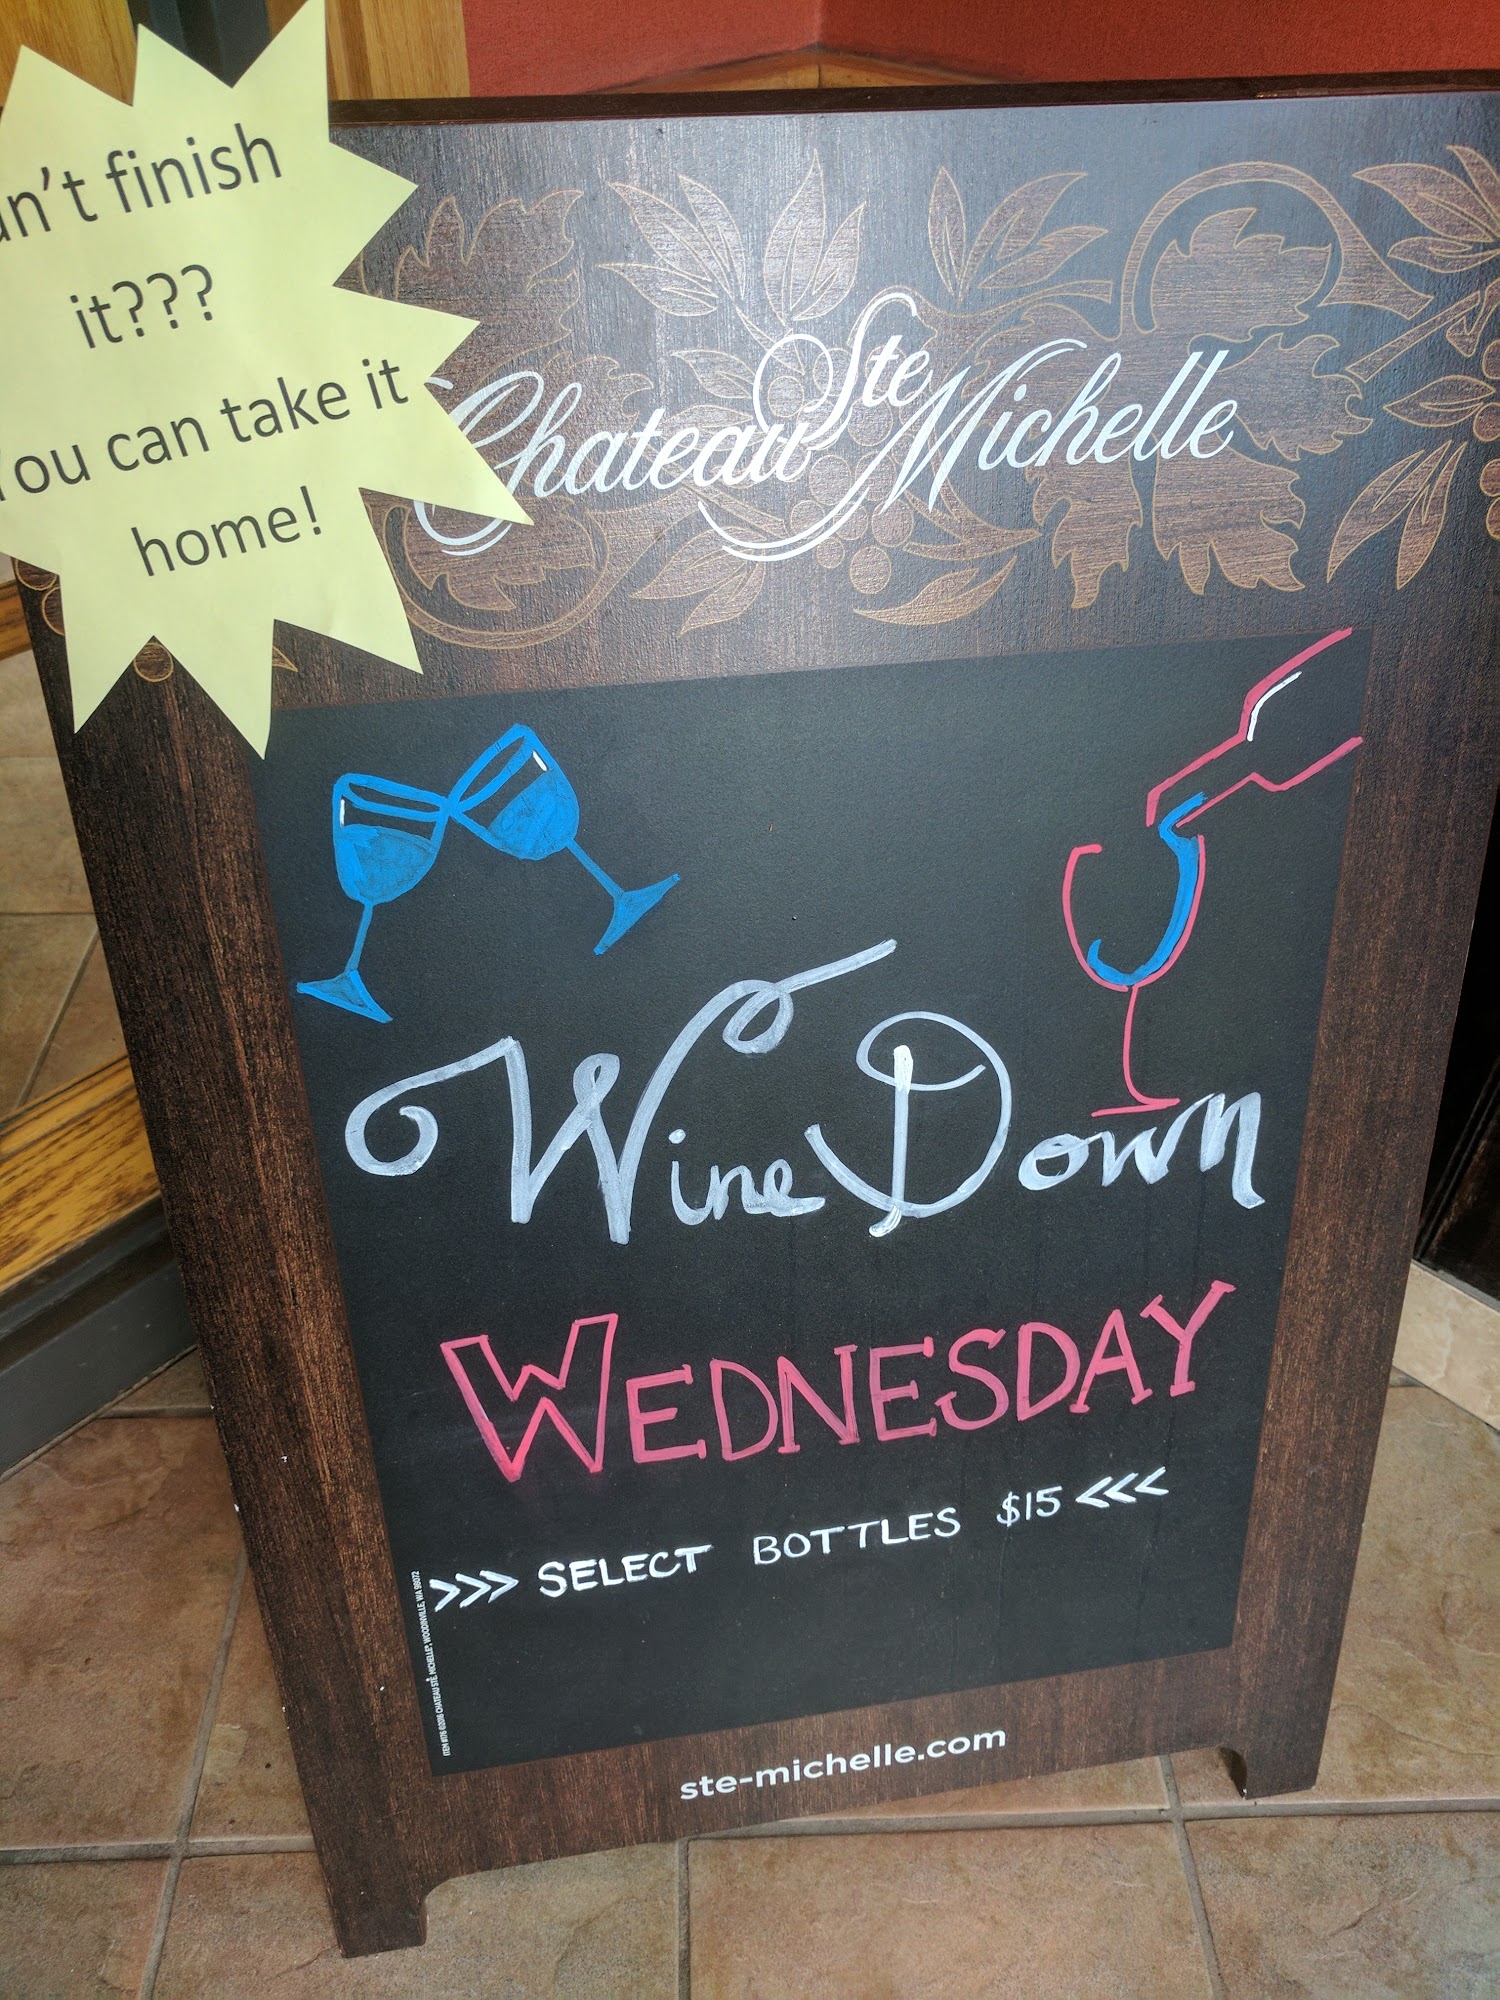 can't finish
it???
You can take it
home!
Chateau Ste Michelle
Wine Down
WEDNESDAY
>>> SELECT BOTTLES $15 <<<
ITEM #176 ©2016 CHATEAU STE. MICHELLE®, WOODINVILLE, WA 98072
ste-michelle.com